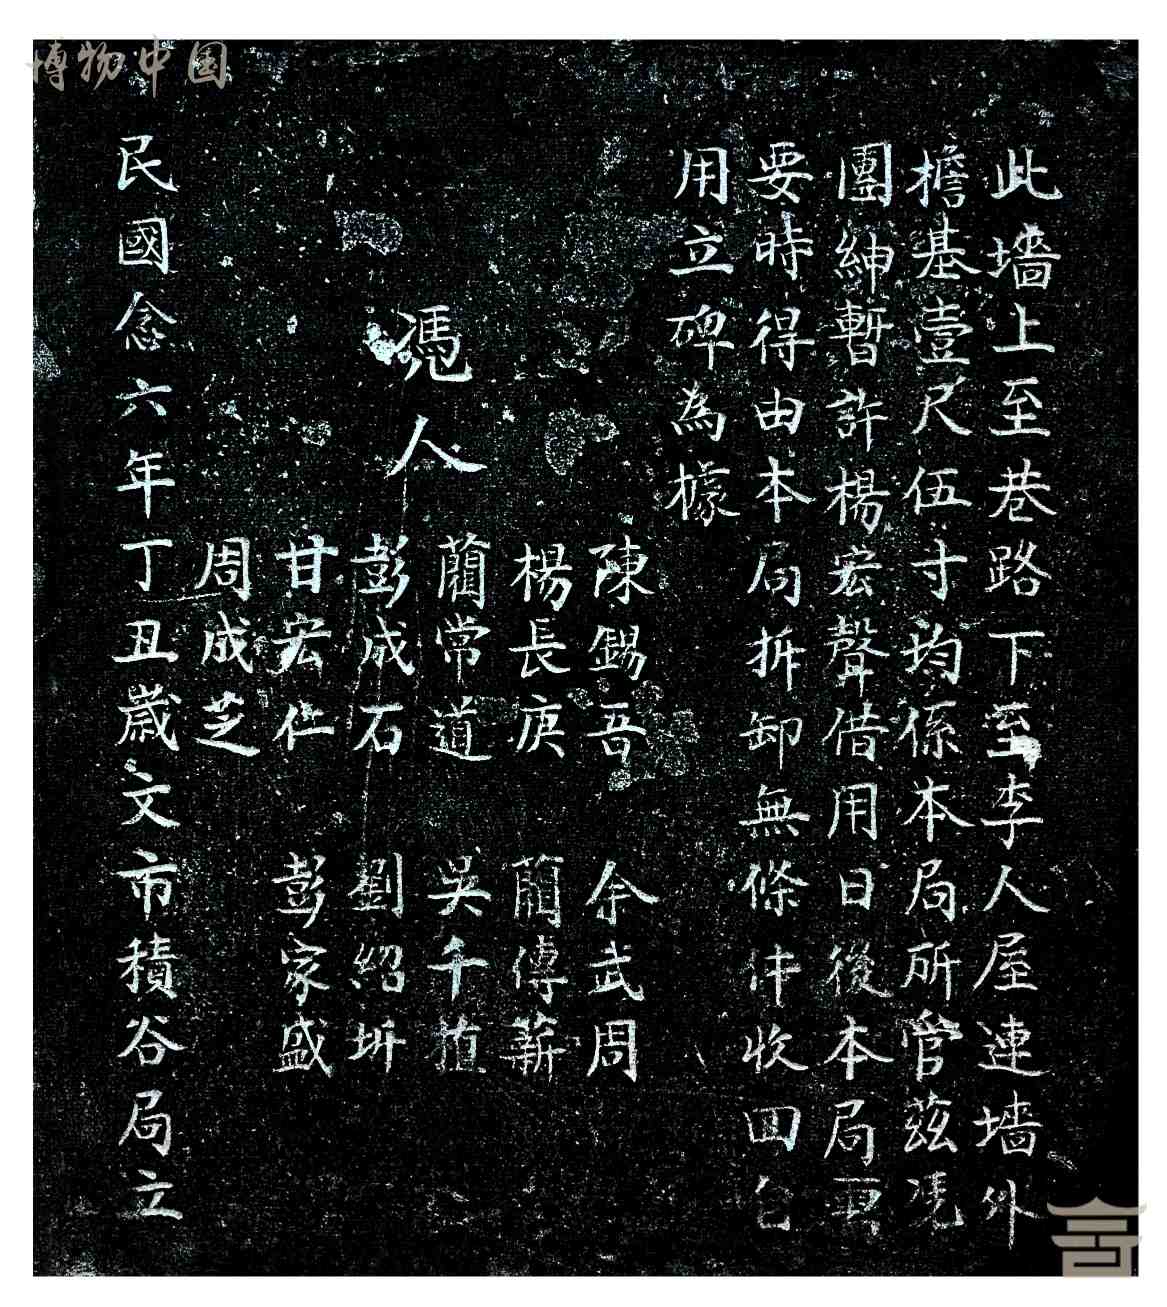 博物中国
此墻上至巷路下至李人屋連墻外
檐基壹尺伍寸均係本局所管茲凴
團紳暫許楊宏聲借用日後本局再
要時得由本局拆卸無條件收回自
用立碑為據
陳錫吾 余武周
楊長庚 藺傅薪
馮人 藺常道 吳千植
彭成石 劉紹圻
甘宏仁 彭家盛
周成芝
民國念六年丁丑歲文市積谷局立